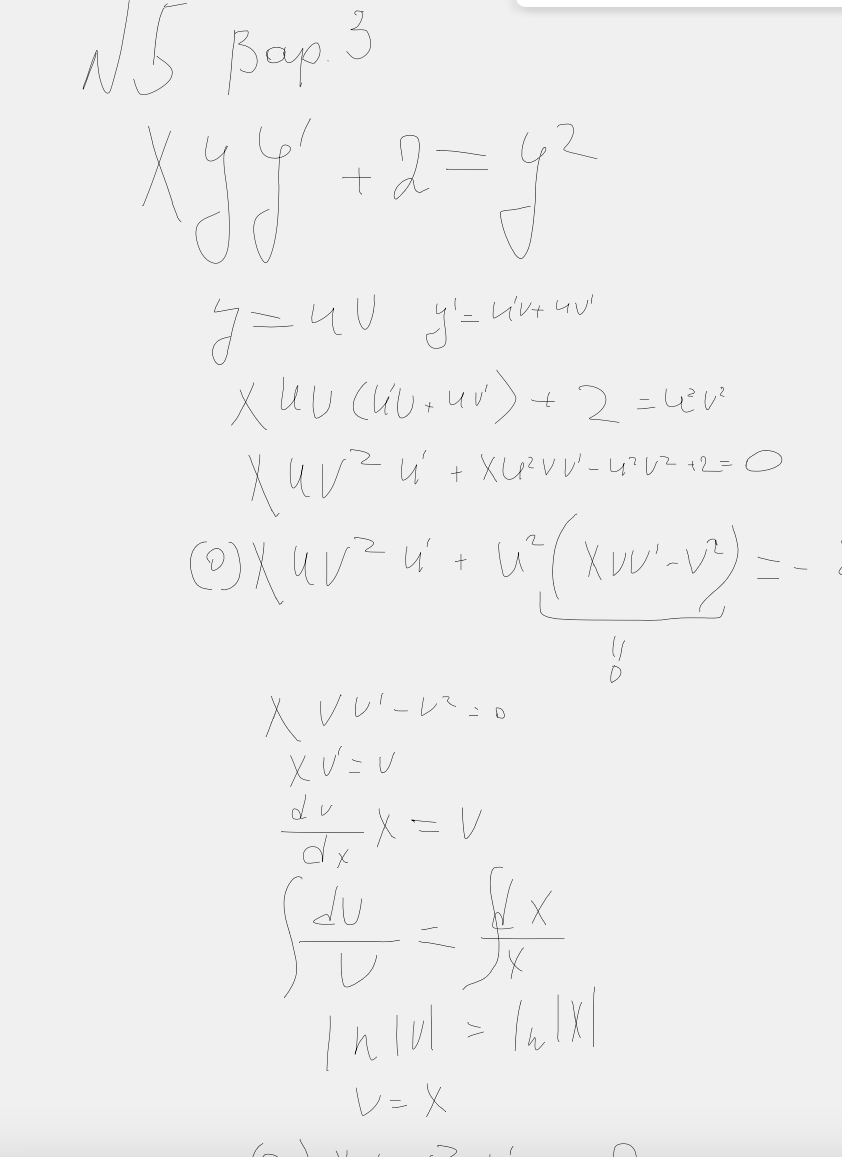 №5 Вар. 3
xyy' + 2 = y²
y = uv y' = u'v + uv'
xuv(u'v + uv') + 2 = u²v²
xuv²u' + xu²vv' - u²v² + 2 = 0
(0) xuv²u' + u²(xvv' - v²) = -
= 0
xvv' - v² = 0
xv' = v
dv/dx x = v
∫ dv/v = ∫ dx/x
ln|v| = ln|x|
v = x